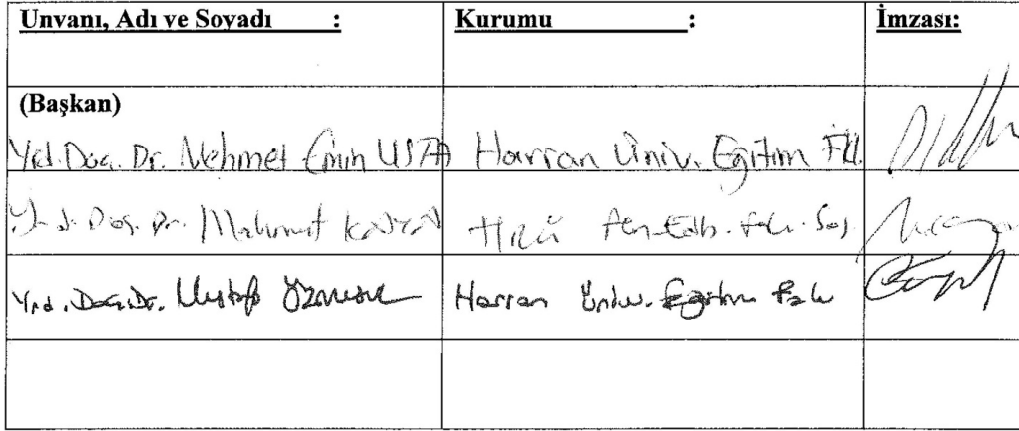 Unvanı, Adı ve Soyadı : Kurumu : İmzası:
(Başkan)
Yrd. Doç. Dr. Mehmet Emin USTA Harran Üniv. Eğitim Fk.
Yrd. Doç. Dr. Mahmut HRÜ Fen-Edb. Fak. Sos.
Yrd. Doç. Dr. Mustafa Harran Üniv. Eğitim Fak